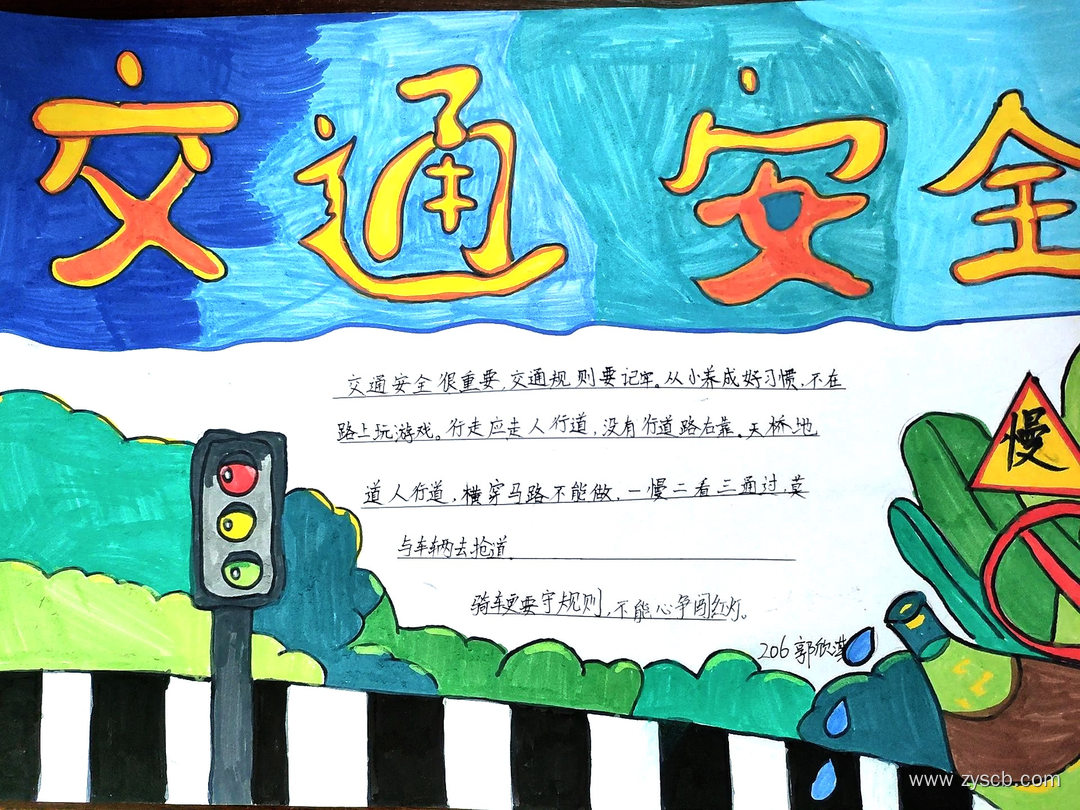 交通安全
交通安全很重要,交通规则要记牢。从小养成好习惯,不在
路上玩游戏。行走应走人行道,没有行道路右靠。天桥地
道人行道,横穿马路不能做,一慢二看三通过,莫
与车辆去抢道。
骑车更要守规则,不能心争闯红灯。
206 郭欣
慢
www.zyscb.com